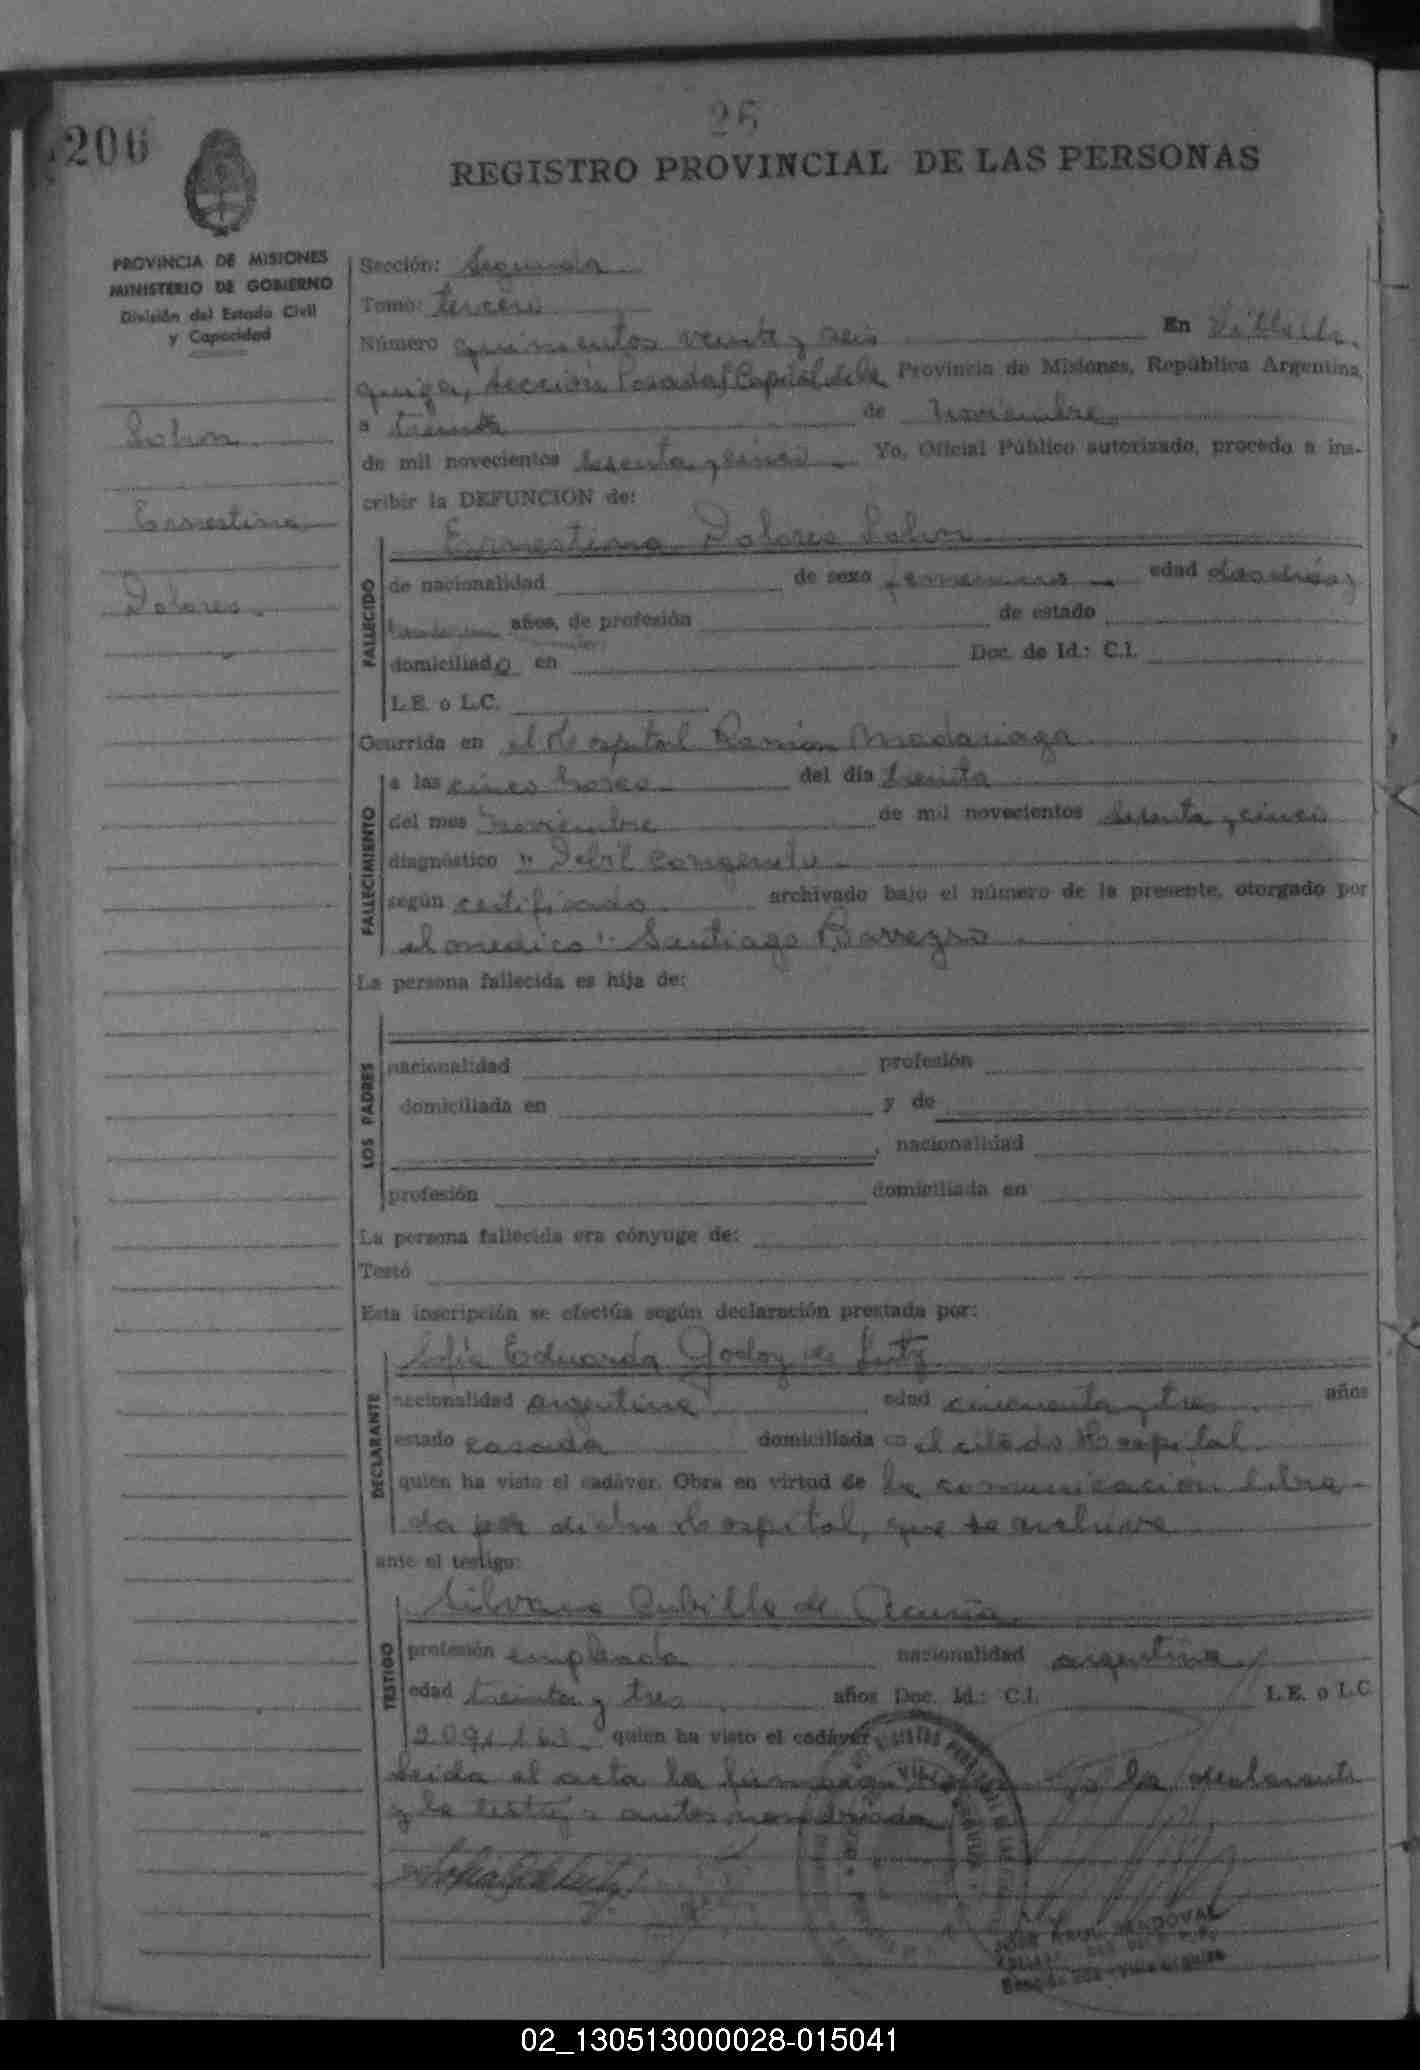 206
25
REGISTRO PROVINCIAL DE LAS PERSONAS
PROVINCIA DE MISIONES
MINISTERIO DE GOBIERNO
División del Estado Civil
y Capacidad
Ernestina
Dolores
Sección: Segunda
Tomo: tercero
Número quinientos veinte y seis En Villa Ur
quiza, sección Posadas Capital de la Provincia de Misiones, República Argentina,
a treinta de Noviembre
de mil novecientos sesenta y cinco Yo, Oficial Público autorizado, procedo a ins-
cribir la DEFUNCION de:
Ernestina Dolores
FALLECIDO
de nacionalidad de sexo femenino edad
años, de profesión de estado
domiciliado en Doc. de Id.: C.I.
L.E. o L.C.
Ocurrida en el Hospital Ramón Madariaga
FALLECIMIENTO
a las cinco horas del día treinta
del mes Noviembre de mil novecientos sesenta y cinco
diagnóstico "Debil congenito
según certificado archivado bajo el número de la presente, otorgado por
el medico: Santiago Barreyro
La persona fallecida es hija de:
LOS PADRES
nacionalidad profesión
domiciliada en y de
, nacionalidad
profesión domiciliada en
La persona fallecida era cónyuge de:
Testó
Esta inscripción se efectúa según declaración prestada por:
DECLARANTE
Sofia Eduarda Godoy de
nacionalidad argentina edad cincuenta y tres años
estado casada domiciliada en el citado Hospital
quien ha visto el cadáver. Obra en virtud de la comunicación libra-
da por dicho Hospital, que se archiva
ante el testigo:
TESTIGO
Silvano Cubilla de Acuña
profesión empleada nacionalidad argentina
edad treinta y tres años Doc. Id.: C.I. L.E. o L.C.
quien ha visto el cadáver
Leida el acta la la declarante
y la testigo antes nombrada
JOSE RAUL SANDOVAL
02_130513000028-015041